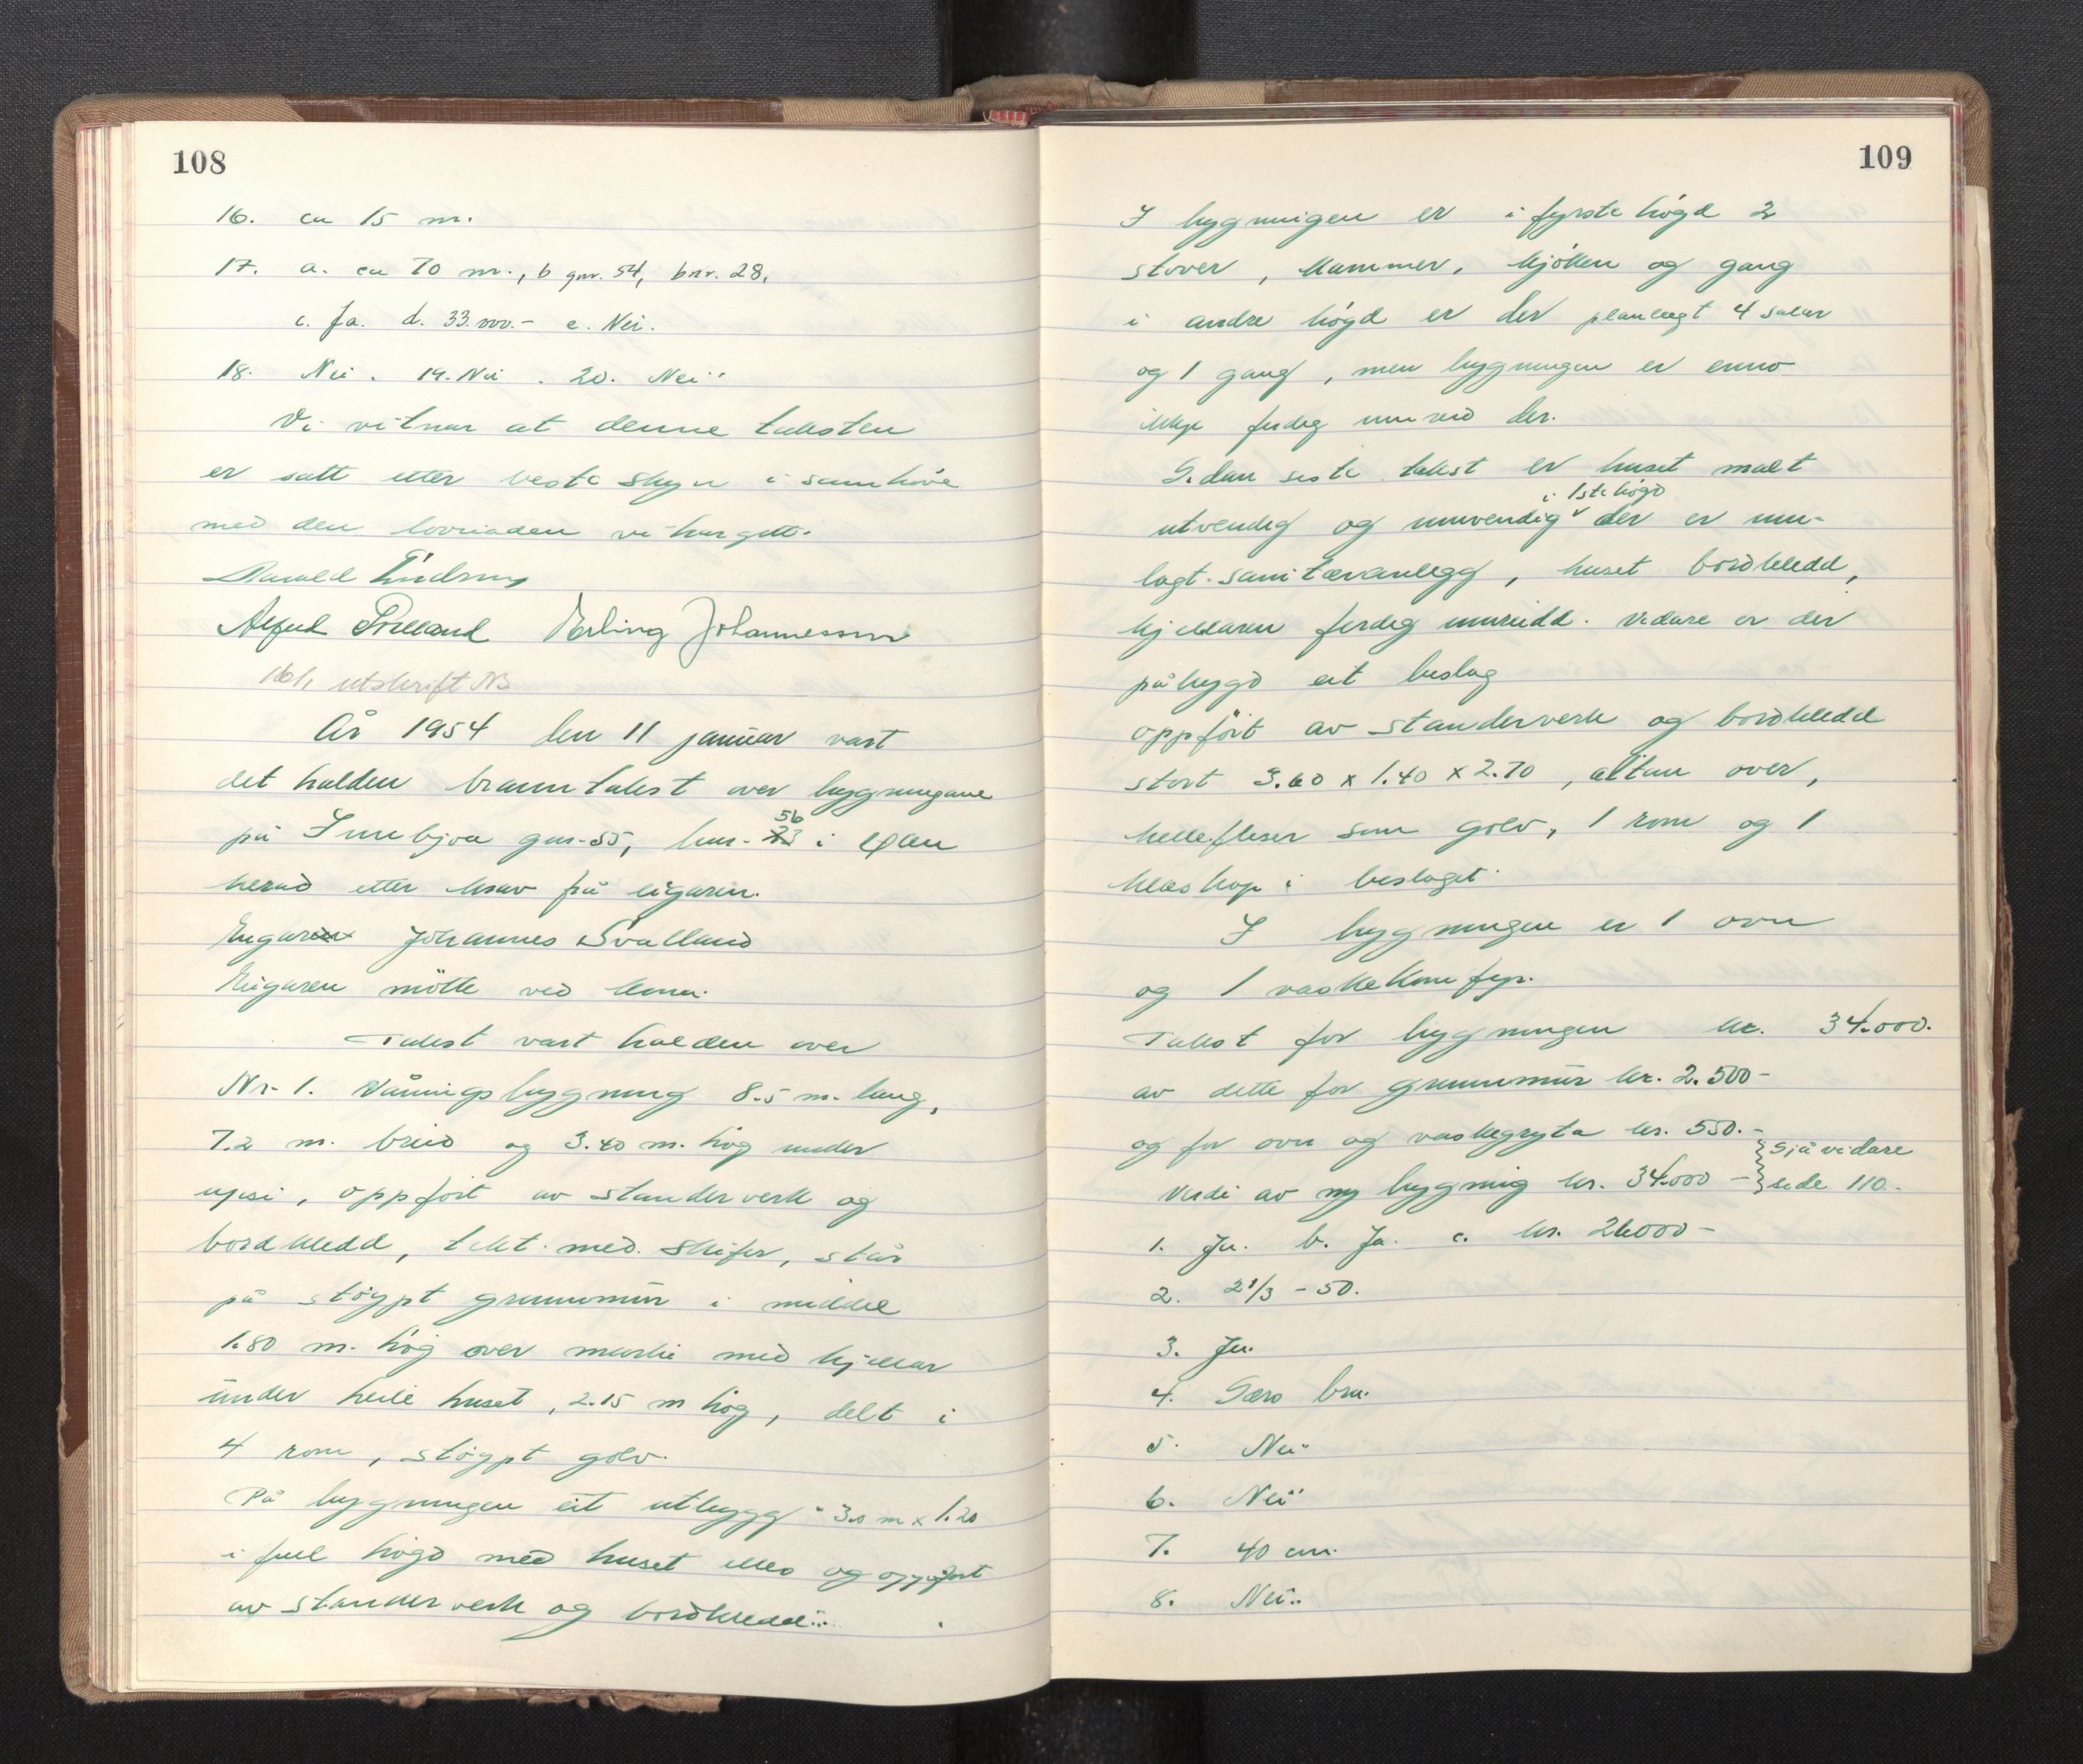 108
16. ca 15 m.
17. a. ca 70 m., b gnr. 54, bnr. 28,
c. Ja. d. 33.000.- e. Nei.
18. Nei. 19. Nei. 20. Nei
Vi vitnar at denne taksten
er satt etter beste skyn i samhöve
med den lovnaden vi har gitt.
Alfred Erling Johannessen
utskrift
År 1954 den 11 januar vart
det halden branntakst over bygningane
på gnr. 55, bnr. 23 56 i
herad etter krav frå eigaren.
Eigaren Johannes Svalland
Eigaren mötte ved kona.
Takst vart halden over
Nr. 1. Våningsbygning 8.5 m. lang,
7.2 m. breid og 3.40 m. høg under
upsi, oppfört av standerverk og
bordkledd, tekt med skifer, står
på stöypt grunnmur i middel
1.80 m. høg over marki med kjellar
under heile huset, 2.15 m høg, delt i
4 rom, støypt golv.
På bygningen eit utbygg 3.0 m x 1.20
i full høgd med huset elles og oppført
av standerverk og bordkledd.
109
I bygningen er i fyrste høgd 2
stover, kammer, kjöken og gang
i andre høgd er der planlagt 4 salar
og 1 gang, men bygningen er enno
ikkje ferdig der.
Sidan siste takst er huset malt
i 1ste høgd
utvendig og innvendig der er inn-
lagt sanitæranlegg, huset bordkledd,
kjellaren ferdig innreidd. Vidare er der
påbygd eit beslag
oppført av standerverk og bordkledd
stort 3.60 x 1.40 x 2.70, altan over,
hellefliser som golv, 1 rom og 1
kleskap i beslaget.
I bygningen er 1 ovn
og 1 vaskekomfyr.
Takst for bygningen kr. 34.000.
av dette for grunnmur kr. 2.500-
og for ovn og vaskegryta kr. 550.-
Verdi av ny bygning kr. 34.000 - } Sjå vidare
side 110.
1. Ja. b. Ja. c. kr. 26000-
2. 2 1/3 - 50.
3. Ja.
4. Særs bra.
5. Nei.
6. Nei
7. 40 cm.
8. Nei.